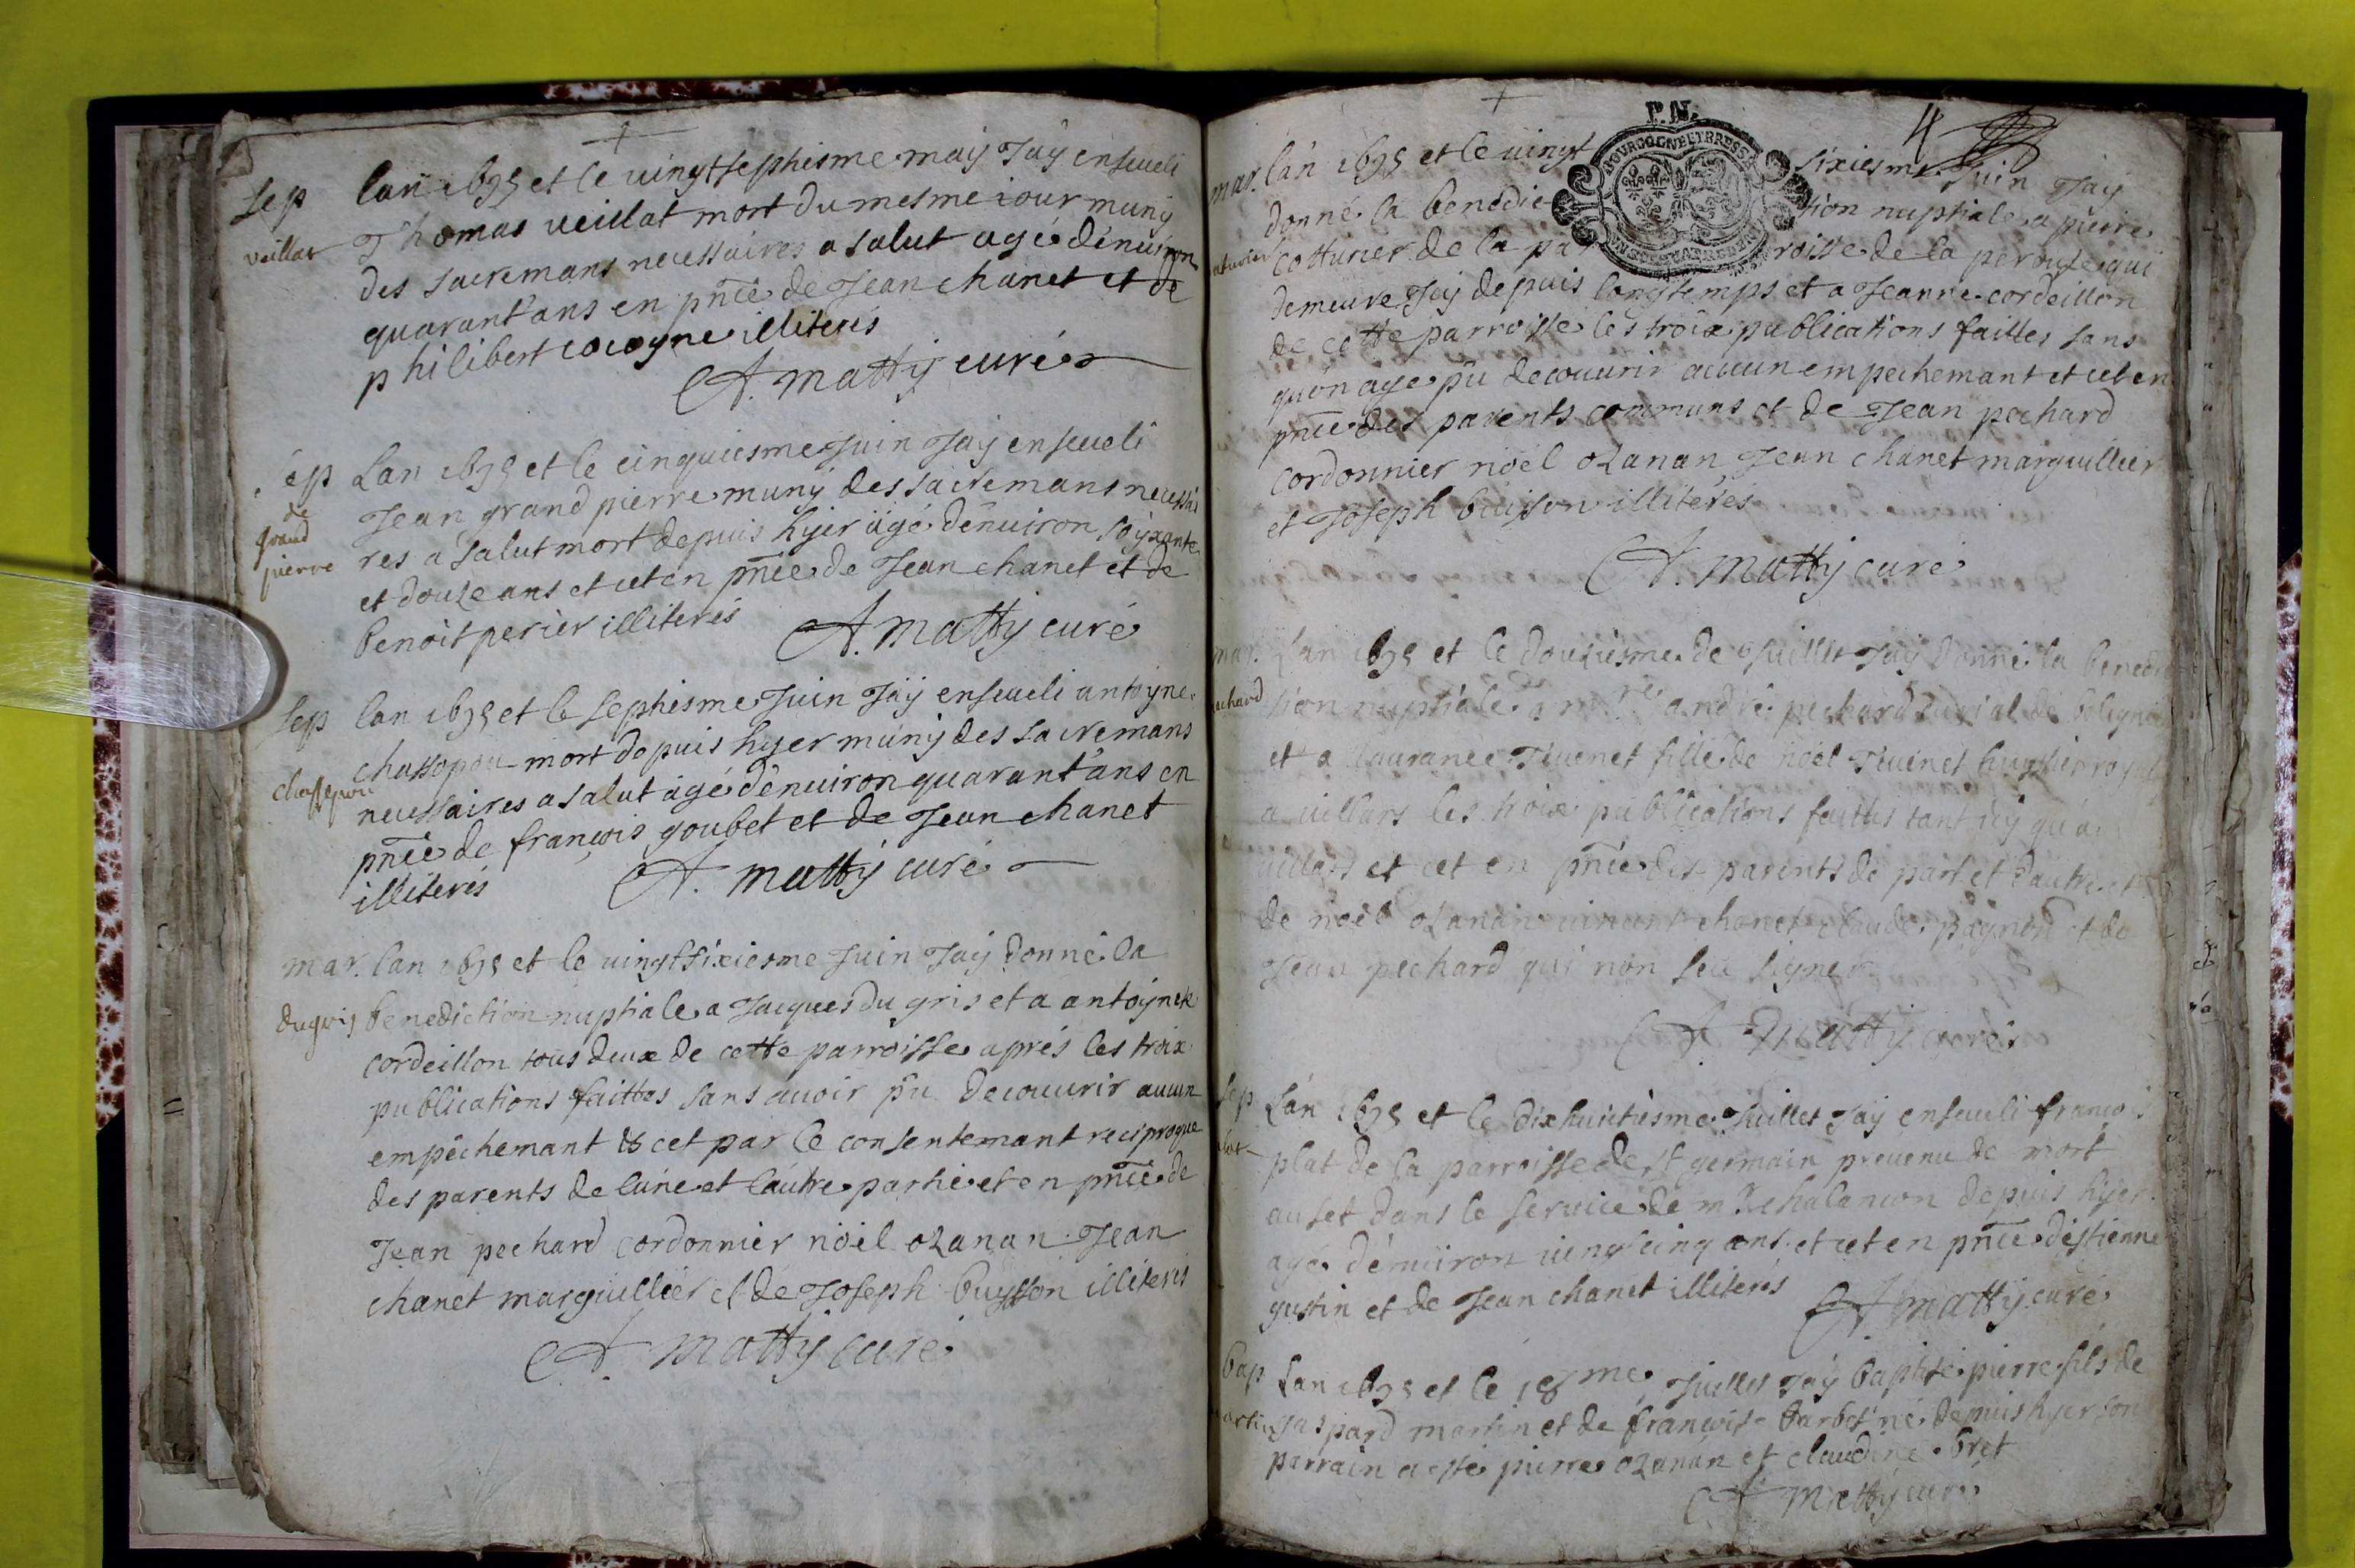 Sep lan 1695 et le vingtsephisme maij Jaij enseueli
veillat Thomas veillat mort du mesme iour munij
des sacremans necessaires a salut agé dénuiron
quarant'ans en pñce de Jean chanet et de
philibert cocogne illiterés
A. mattij curé
sep Lan 1695 et le cinquiesme Juin Jaij enseueli
de grand pierre Jean grand pierre munij des sacremans necessai
res a salut mort depuis hijer agé dénuiron soyxante
et douze ans et cet en pñce de Jean chanet et de
benoit perier illiterés
A. mattij curé
sep lan 1695 et le sephisme Juin Jaij enseueli antoyne
chassepou chassopou mort depuis hyer munij des sacremans
necessaires a salut agé dénuiron quarant'ans en
pñce de françois goubet et de Jean chanet
illiterés
A. mattij curé
mar. lan 1695 et le vingtsixiesme Juin Jaij donné la
dugris benediction nuptiale a Jacques du gris et a antoynete
cordeillon tous deux de cette parroisse aprés les troix
publications faittes sans auoir pû decouurir aucun
empêchemant & cet par le consentemant reciproque
des parents de lúne et láutre partie et en pñce de
Jean pechard cordonnier nöel ozanan Jean
chanet marguillier et de Joseph buysson illiterés
A. mattij curé
P. N.
4
BOURGOGNE ET BRESSE
mar. lán 1695 et le vingt sixiesme Juin Jaij
donné la benediction nuptiale a pierre
cotturier de la parroisse de la perouse qui
demeure Jcij depuis longtemps et a Jeanne cordeillon
de cette parroisse les troix publications faittes sans
qu'on aye pû decouurir aucun empechemant et cet en
pñce des parents communs et de Jean pechard
cordonnier nöel ozanan Jean chanet marguillier
et Joseph buison illiterés
A. mattij curé
mar. Lan 1695 et le douziesme de Juillet Jaij donné la benedi
pechard tion nuptiale a mre andré pechard curial de boligneu
et a laurance Juenet fille de nöel Juenet huyssier royal
a villars les troix publications faittes tant icy qu'a
villars et cet en pñce des parents de part et dautre et
de nöel ozanan vincent chanet claude paynod et de
Jean pechard qui n'on seu signer
A. mattij curé
sep Lán 1695 et le dixhuictiesme Juillet Jaij enseueli françois
plat plat de la parroisse de st germain preuenu de mort
au set dans le seruice de mr chalancon depuis hijer
agé dénuiron vingtcinq ans et cet en pñce déstienne
gustin et de Jean chanet illiterés
A. mattij curé
bap Lan 1695 et le 18me Juillet Jaij baptisé pierre fils de
martin gaspard martin et de françoise barbet né depuis hyer son
parrain a esté pierre ozanan et claudine bret
A. mattij curé